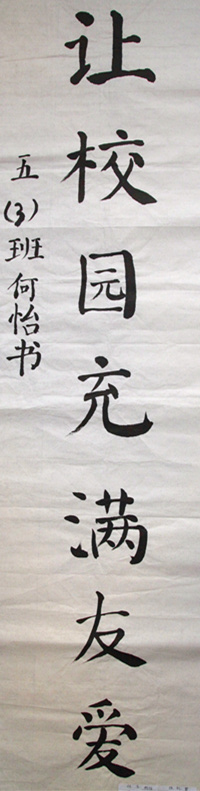 让校园充满友爱
五(3)班何怡书